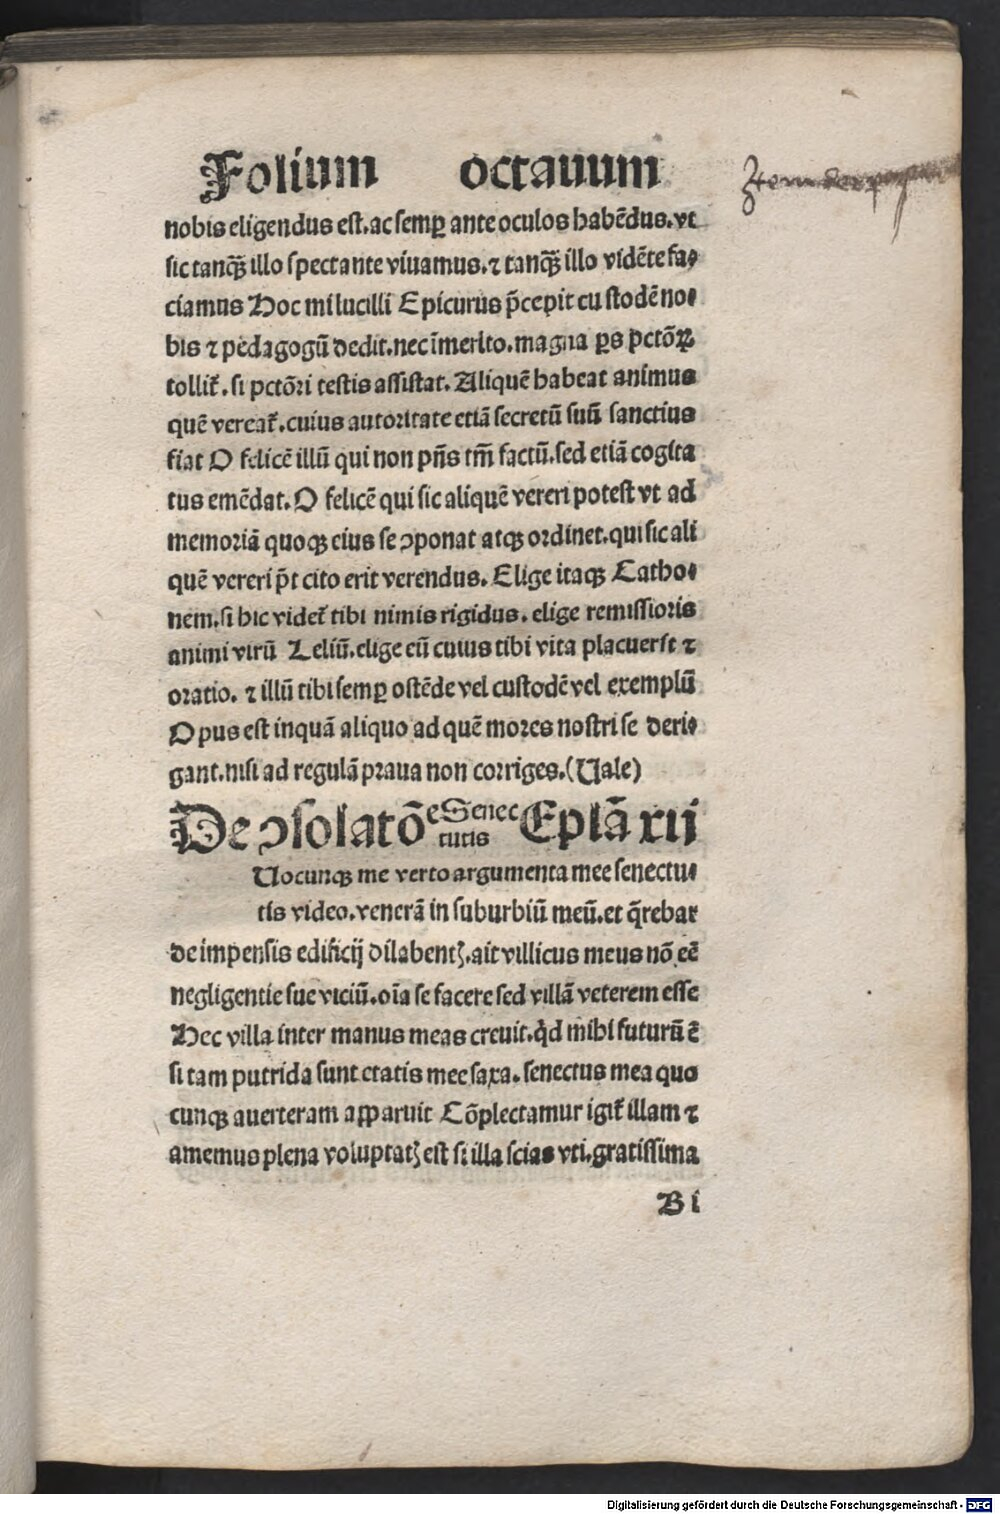 Folium octauum
nobis eligendus est. ac semꝑ ante oculos habēdus. vt
sic tanqᷓ illo spectante viuamus. ⁊ tanqᷓ illo vidēte fa⸗
ciamus Hoc mi lucilli Epicurus p̄cepit custodē no⸗
bis ⁊ pedagogū dedit. nec īmerito. magna ꝑs pctōꝝ
tollit᷑. si pctōri testis assistat. Aliquē habeat animus
quē vereat᷑. cuius autoritate etiā secretū suū sanctius
fiat O felicē illū qui non pn̄s tm̄ factū. sed etiā cogita
tus emēdat. O felicē qui sic aliquē vereri potest vt ad
memoriā quoqꝫ eius se ꝯponat atqꝫ ordinet. qui sic ali
quē vereri p̄t cito erit verendus. Elige itaqꝫ Catho⸗
nem. si hic videt᷑ tibi nimis rigidus. elige remissioris
animi virū Leliū. elige eū cuius tibi vita placuerit ⁊
oratio. ⁊ illū tibi semꝑ ostēde vel custodē vel exemplū
Opus est inquā aliquo ad quē mores nostri se deri⸗
gant. nisi ad regulā praua non corriges. (Uale)
De ꝯsolatōe Senectutis Eplā xij
Uocunqꝫ me verto argumenta mee senectu⸗
tis video. venerā in suburbiū meū. et q̄rebar
de impensis edificij dilabentꝭ. ait villicus meus nō eē
negligentie sue viciū. oīa se facere sed villā veterem esse
Hec villa inter manus meas creuit. qd̓ mihi futurū ē
si tam putrida sunt etatis mee saxa. senectus mea quo
cunqꝫ auerteram apparuit Cōplectamur igit᷑ illam ⁊
amemus plena voluptatꝭ est si illa scias vti. gratissima
B i
Item
Digitalisierung gefördert durch die Deutsche Forschungsgemeinschaft - DFG